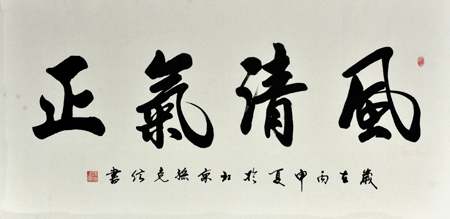 風清氣正
歲在丙申夏於北京孫克信書